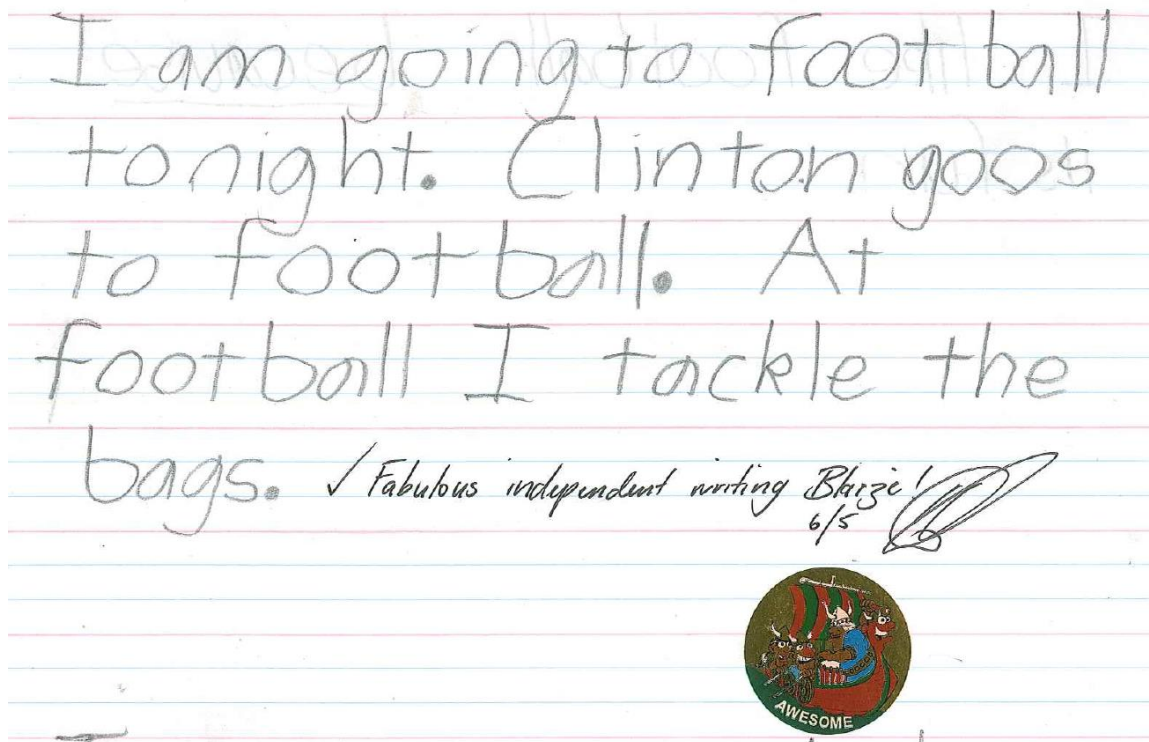 I am going to football
tonight. Clinton goos
to football. At
football I tackle the
bags. ✓ Fabulous independent writing Blaize!
6/5
AWESOME